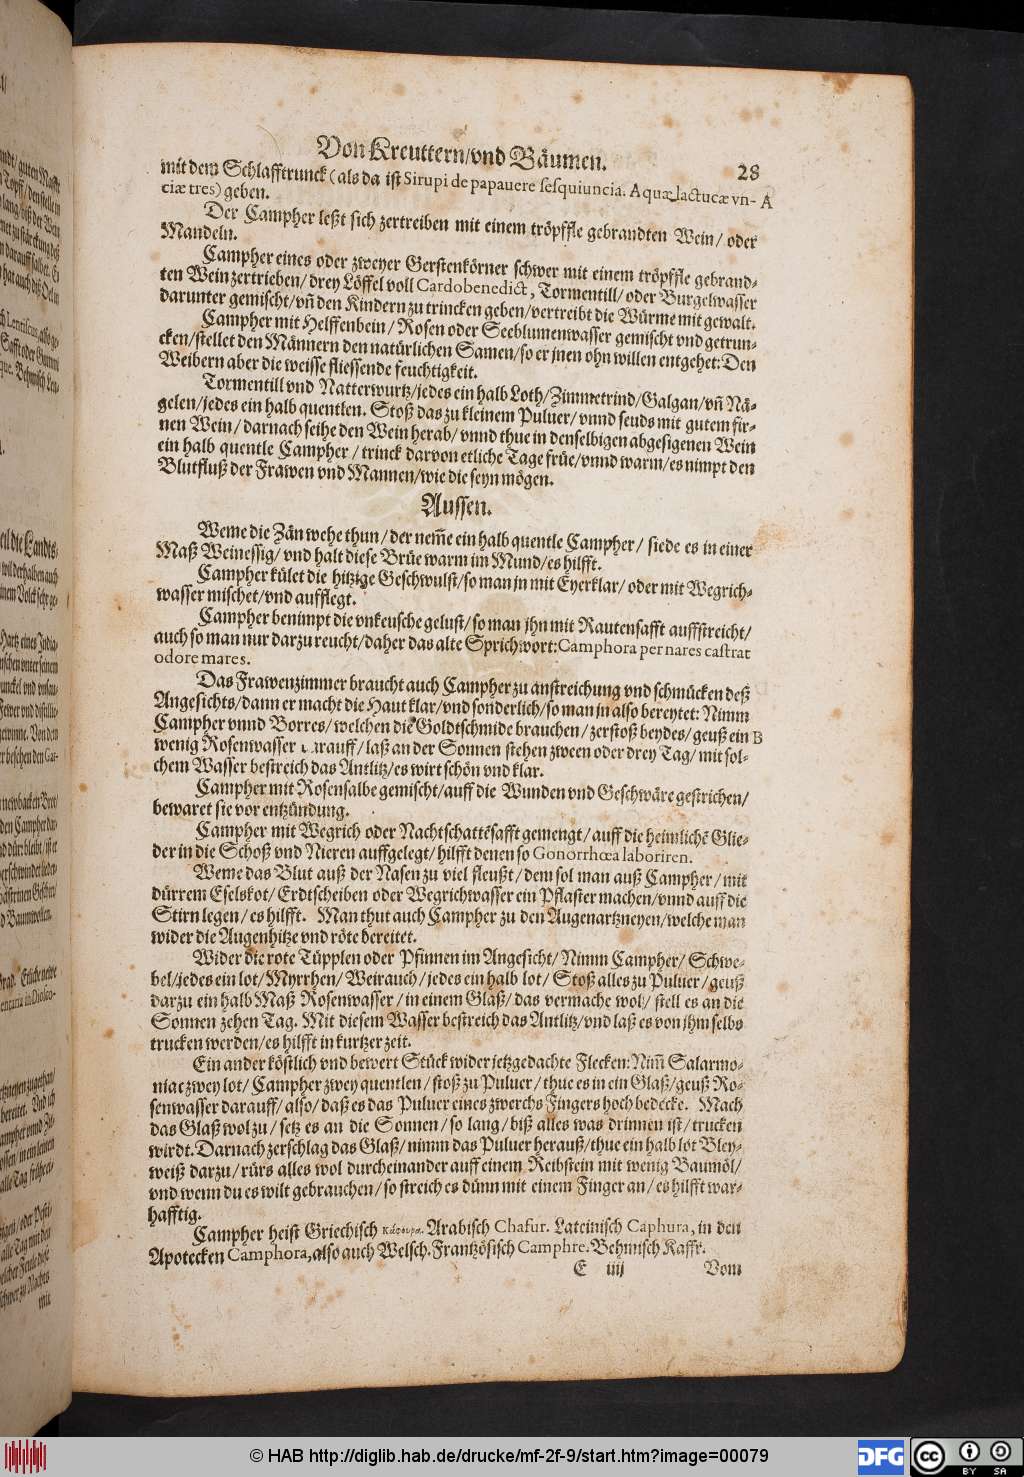 Von Kreuttern/vnd Bäumen. 28
mit dem Schlafftrunck (als da ist Sirupi de papauere sesquiuncia. Aquæ lactucæ vn- A
ciæ tres) geben.
Der Campher leßt sich zertreiben mit einem tröpffle gebrandten Wein/ oder
Mandeln.
Campher eines oder zweyer Gerstenkörner schwer mit einem tröpffle gebrand-
ten Wein zertrieben/ drey Löffel voll Cardobenedict, Tormentill/ oder Burgelwasser
darunter gemischt/ vñ den Kindern zu trincken geben/ vertreibt die Würme mit gewalt.
Campher mit Helffenbein/ Rosen oder Seeblumenwasser gemischt vnd getrun-
cken/ stellet den Männern den natürlichen Samen/ so er jnen ohn willen entgehet: Den
Weibern aber die weisse fliessende feuchtigkeit.
Tormentill vnd Natterwurtz/ jedes ein halb Loth/ Zimmetrind/ Galgan/ vñ Nä-
gelen/ jedes ein halb quentlen. Stoß das zu kleinem Puluer/ vnnd seuds mit gutem fir-
nen Wein/ darnach seihe den Wein herab/ vnnd thue in denselbigen abgesigenen Wein
ein halb quentle Campher/ trinck darvon etliche Tage früe/ vnnd warm/ es nimpt den
Blutfluß der Frawen vnd Mannen/ wie die seyn mögen.
Aussen.
Weme die Zän wehe thun/ der nem̃e ein halb quentle Campher/ siede es in einer
Maß Weinessig/ vnd halt diese Brüe warm im Mund/ es hilfft.
Campher kület die hitzige Geschwulst/ so man jn mit Eyerklar/ oder mit Wegrich-
wasser mischet/ vnd aufflegt.
Campher benimpt die vnkeusche gelust/ so man jhn mit Rautensafft auffstreicht/
auch so man nur darzu reucht/ daher das alte Sprichwort: Camphora per nares castrat
odore mares.
Das Frawenzimmer braucht auch Campher zu anstreichung vnd schmücken deß
Angesichts/ dann er macht die Haut klar/ vnd sonderlich/ so man jn also bereytet: Nimm
Campher vnnd Borres/ welchen die Goldtschmide brauchen/ zerstoß beydes/ geuß ein B
wenig Rosenwasser darauff/ laß an der Sonnen stehen zween oder drey Tag/ mit sol-
chem Wasser bestreich das Antlitz/ es wirt schön vnd klar.
Campher mit Rosensalbe gemischt/ auff die Wunden vnd Geschwäre gestrichen/
bewaret sie vor entzündung.
Campher mit Wegrich oder Nachtschattẽsafft gemengt/ auff die heimlichẽ Glie-
der in die Schoß vnd Nieren auffgelegt/ hilfft denen so Gonorrhœa laboriren.
Weme das Blut auß der Nasen zu viel fleußt/ dem sol man auß Campher/ mit
dürrem Eselskot/ Erdtscheiben oder Wegrichwasser ein Pflaster machen/ vnnd auff die
Stirn legen/ es hilfft. Man thut auch Campher zu den Augenartzneyen/ welche man
wider die Augenhitze vnd röte bereitet.
Wider die rote Tüpplen oder Pfinnen im Angesicht/ Nimm Campher/ Schwe-
bel/ jedes ein lot/ Myrrhen/ Weirauch/ jedes ein halb lot/ Stoß alles zu Puluer/ geuß
darzu ein halb Maß Rosenwasser/ in einem Glaß/ das vermache wol/ stell es an die
Sonnen zehen Tag. Mit diesem Wasser bestreich das Antlitz/ vnd laß es von jhm selbs
trucken werden/ es hilfft in kurtzer zeit.
Ein ander köstlich vnd bewert Stück wider jetzgedachte Flecken: Nim̃ Salarmo-
niac zwey lot/ Campher zwey quentlen/ stoß zu Puluer/ thue es in ein Glaß/ geuß Ro-
senwasser darauff/ also/ daß es das Puluer eines zwerchs Fingers hoch bedecke. Mach
das Glaß wol zu/ setz es an die Sonnen/ so lang/ biß alles was drinnen ist/ trucken
wirdt. Darnach zerschlag das Glaß/ nimm das Puluer herauß/ thue ein halb lot Bley-
weiß darzu/ rürs alles wol durcheinander auff einem Reibstein mit wenig Baumöl/
vnd wenn du es wilt gebrauchen/ so streich es dünn mit einem Finger an/ es hilfft war-
hafftig.
Campher heist Griechisch Arabisch Chafur. Lateinisch Caphura, in den
Apotecken Camphora, also auch Welsch. Frantzösisch Camphre. Behmisch Kaffr.
E iiij Vom
© HAB http://diglib.hab.de/drucke/mf-2f-9/start.htm?image=00079
DFG
cc BY SA